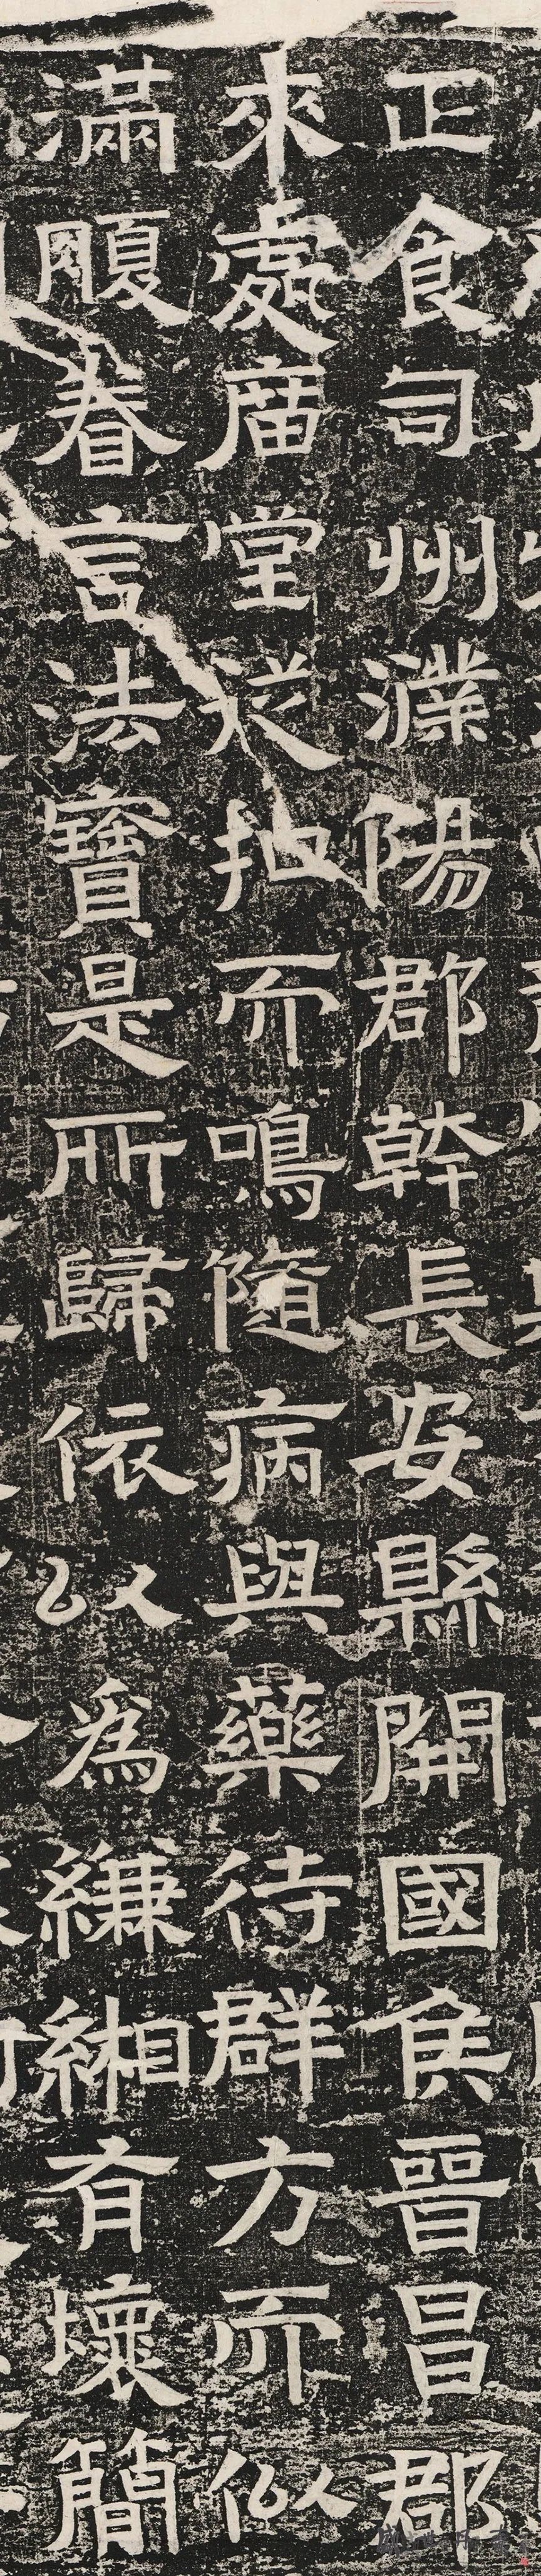 正食司州濮陽郡幹長安縣開國侯晉昌郡
來處庿堂從地而鳴隨病與藥待群方而似
滿腹眷言法寶是所歸依以為縑緗有壞簡